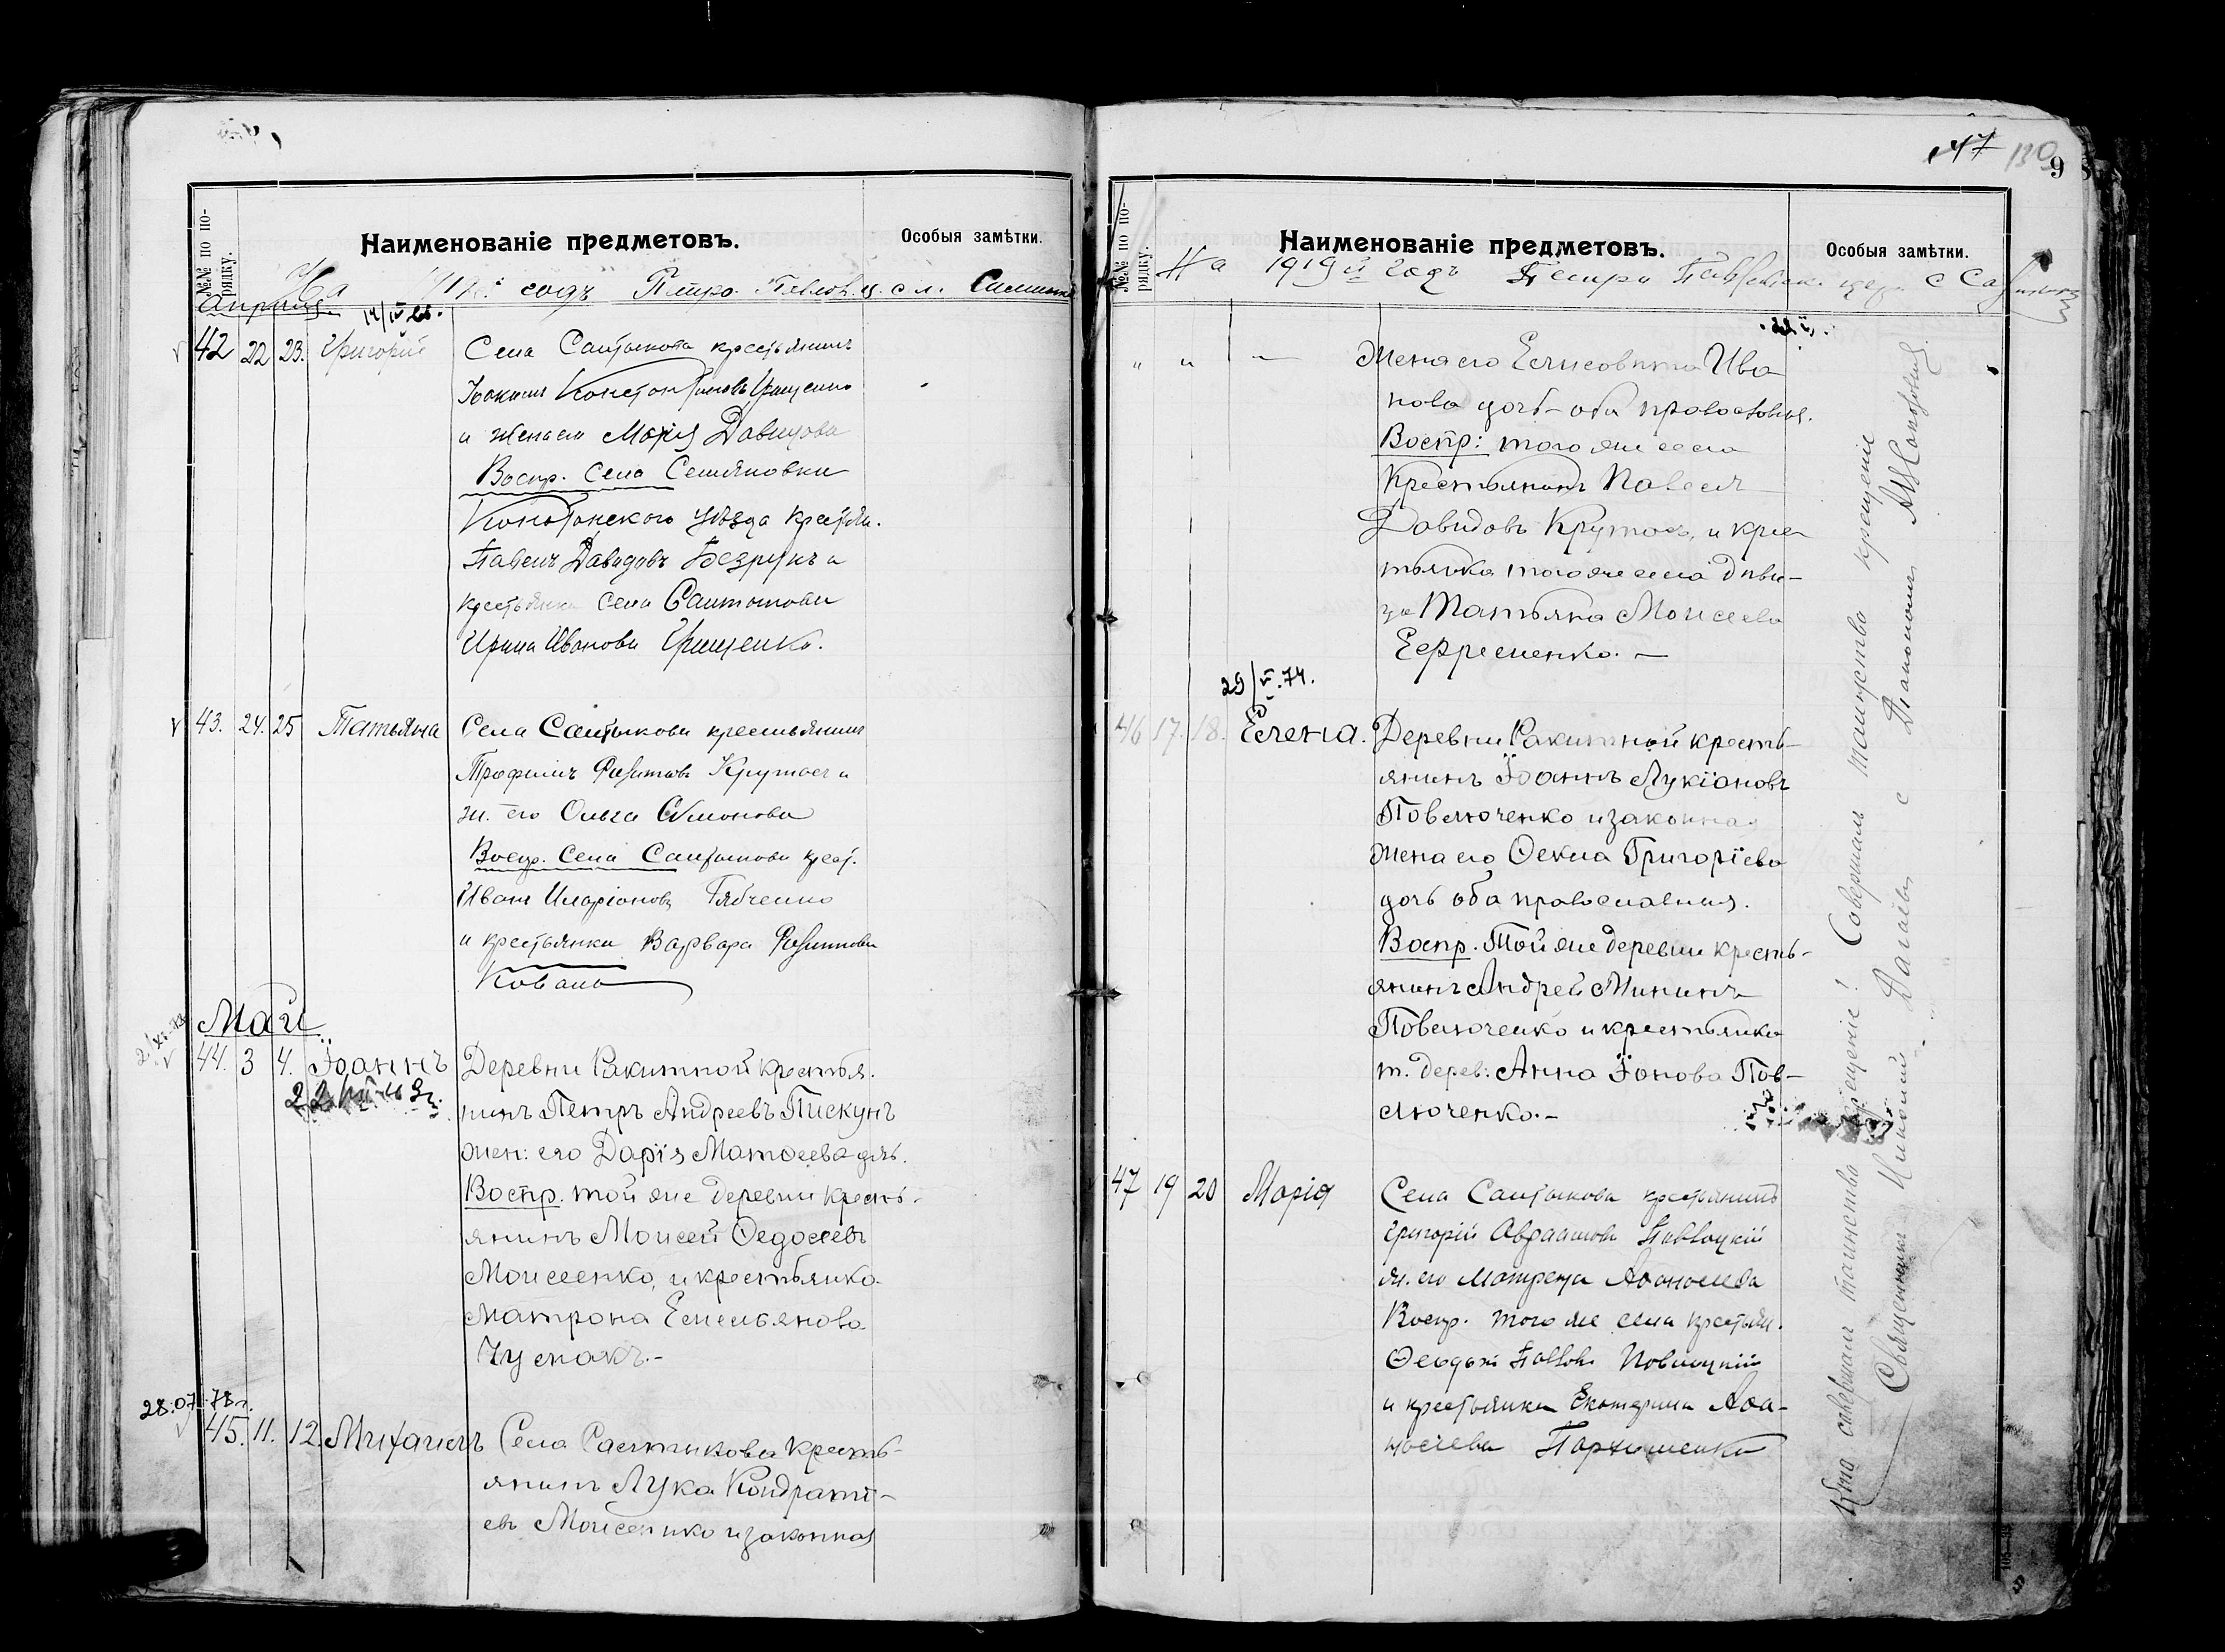 №№ по по-
рядку.
Наименованіе предметовъ.
Особыя замѣтки.
На 1919 годъ Петро-Павлов. ц. с.
Апрѣль
42 22 23. Григорій
Села Салтыкова крестьянинъ
Іоакимъ Константиновъ Грищенко
и жена его Марія Давидова
Воспр. Села Семяновки
Конотопскаго уѣзда крестьян.
Павелъ Давидовъ Безрукъ и
крестьянка села Салтыкова
Ирина Иванова Грищенко.
43. 24. 25 Татьяна
Села Салтыкова крестьянинъ
Трофимъ Крутось и
ж. его Ольга Симонова
Воспр. Села Салтыкова крест.
Иванъ Иларіоновъ Рябченко
и крестьянка Варвара
Коваль
Май
44. 3 4. Іоаннъ
Деревни Ракитной крестья-
нинъ Петръ Андреевъ Пискунъ
жен: его Дарія Матѳеева дочь.
Воспр. той же деревни кресть-
янинъ Моисей Ѳедосеевъ
Моисеенко, и крестьянка
Матрона Емельянова
Чумакъ.-
28.07.78 г.
45. 11. 12. Михаилъ
Села Салтыкова кресть-
янинъ Лука Кондраті-
евъ Моисеенко и законная
47 130 9
№№ по по-
рядку.
Наименованіе предметовъ.
Особыя замѣтки.
На 1919 й годъ Петро Павловск. церк. с
" " —
Жена его Елисовета Ива
нова дочь - оба православныя.
Воспр: того же села
Крестьянинъ Павелъ
Давидовъ Крутось, и крес
тьянка того же села дѣви-
ца Татьяна Моисеева
Ефременко. —
29/VI.74.
46 17. 18. Елена.
Деревни Ракитной кресть-
янинъ Іоаннъ Лукіановъ
Повлюченко и законная
жена его Ѳекла Григоріева
дочь оба православныя.
Воспр. Той же деревни кресть-
янинъ Андрей Мининъ
Повлюченко и крестьянка
т. дерев: Анна Іонова Пов-
люченко.-
47 19 20 Марія
Села Салтыкова крестьянинъ
Григорій Авраамовъ Павлоцкій
ж. его Матрена Аѳаносіева
Воспр. того же села крестьян.
и крестьянка Екатерина Аѳа-
носіева Пархоменко
Кто совершалъ таинство крещенія! Совершалъ таинство крещеніе
Священникъ Николай с Діакономъ